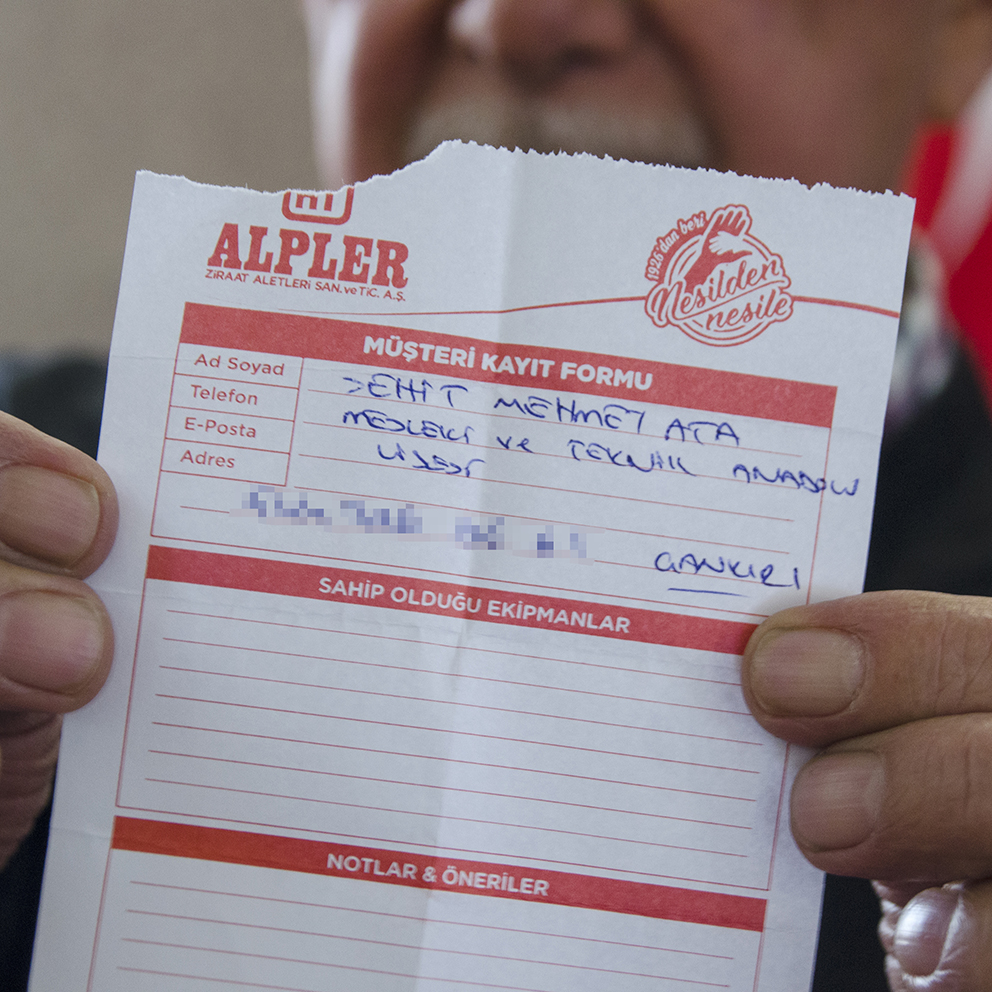 ALPLER
ZİRAAT ALETLERİ SAN. ve TİC. A.Ş.
1926'dan beri
Nesilden
nesile
MÜŞTERİ KAYIT FORMU
Ad Soyad
ŞEHİT MEHMET ATA
Telefon
MESLEKİ ve TEKNİK ANADOLU
E-Posta
LİSESİ
Adres
ÇANKIRI
SAHİP OLDUĞU EKİPMANLAR
NOTLAR & ÖNERİLER